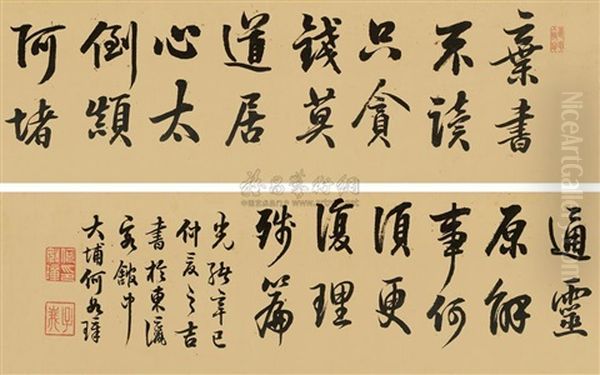 棄書
不讀
只貪
錢莫
道居
心太
倒顛
阿堵
通靈
原解
事何
須更
復理
殘篇
光緒辛巳
仲夏之吉
書於東瀛
客館中
大埔何如璋